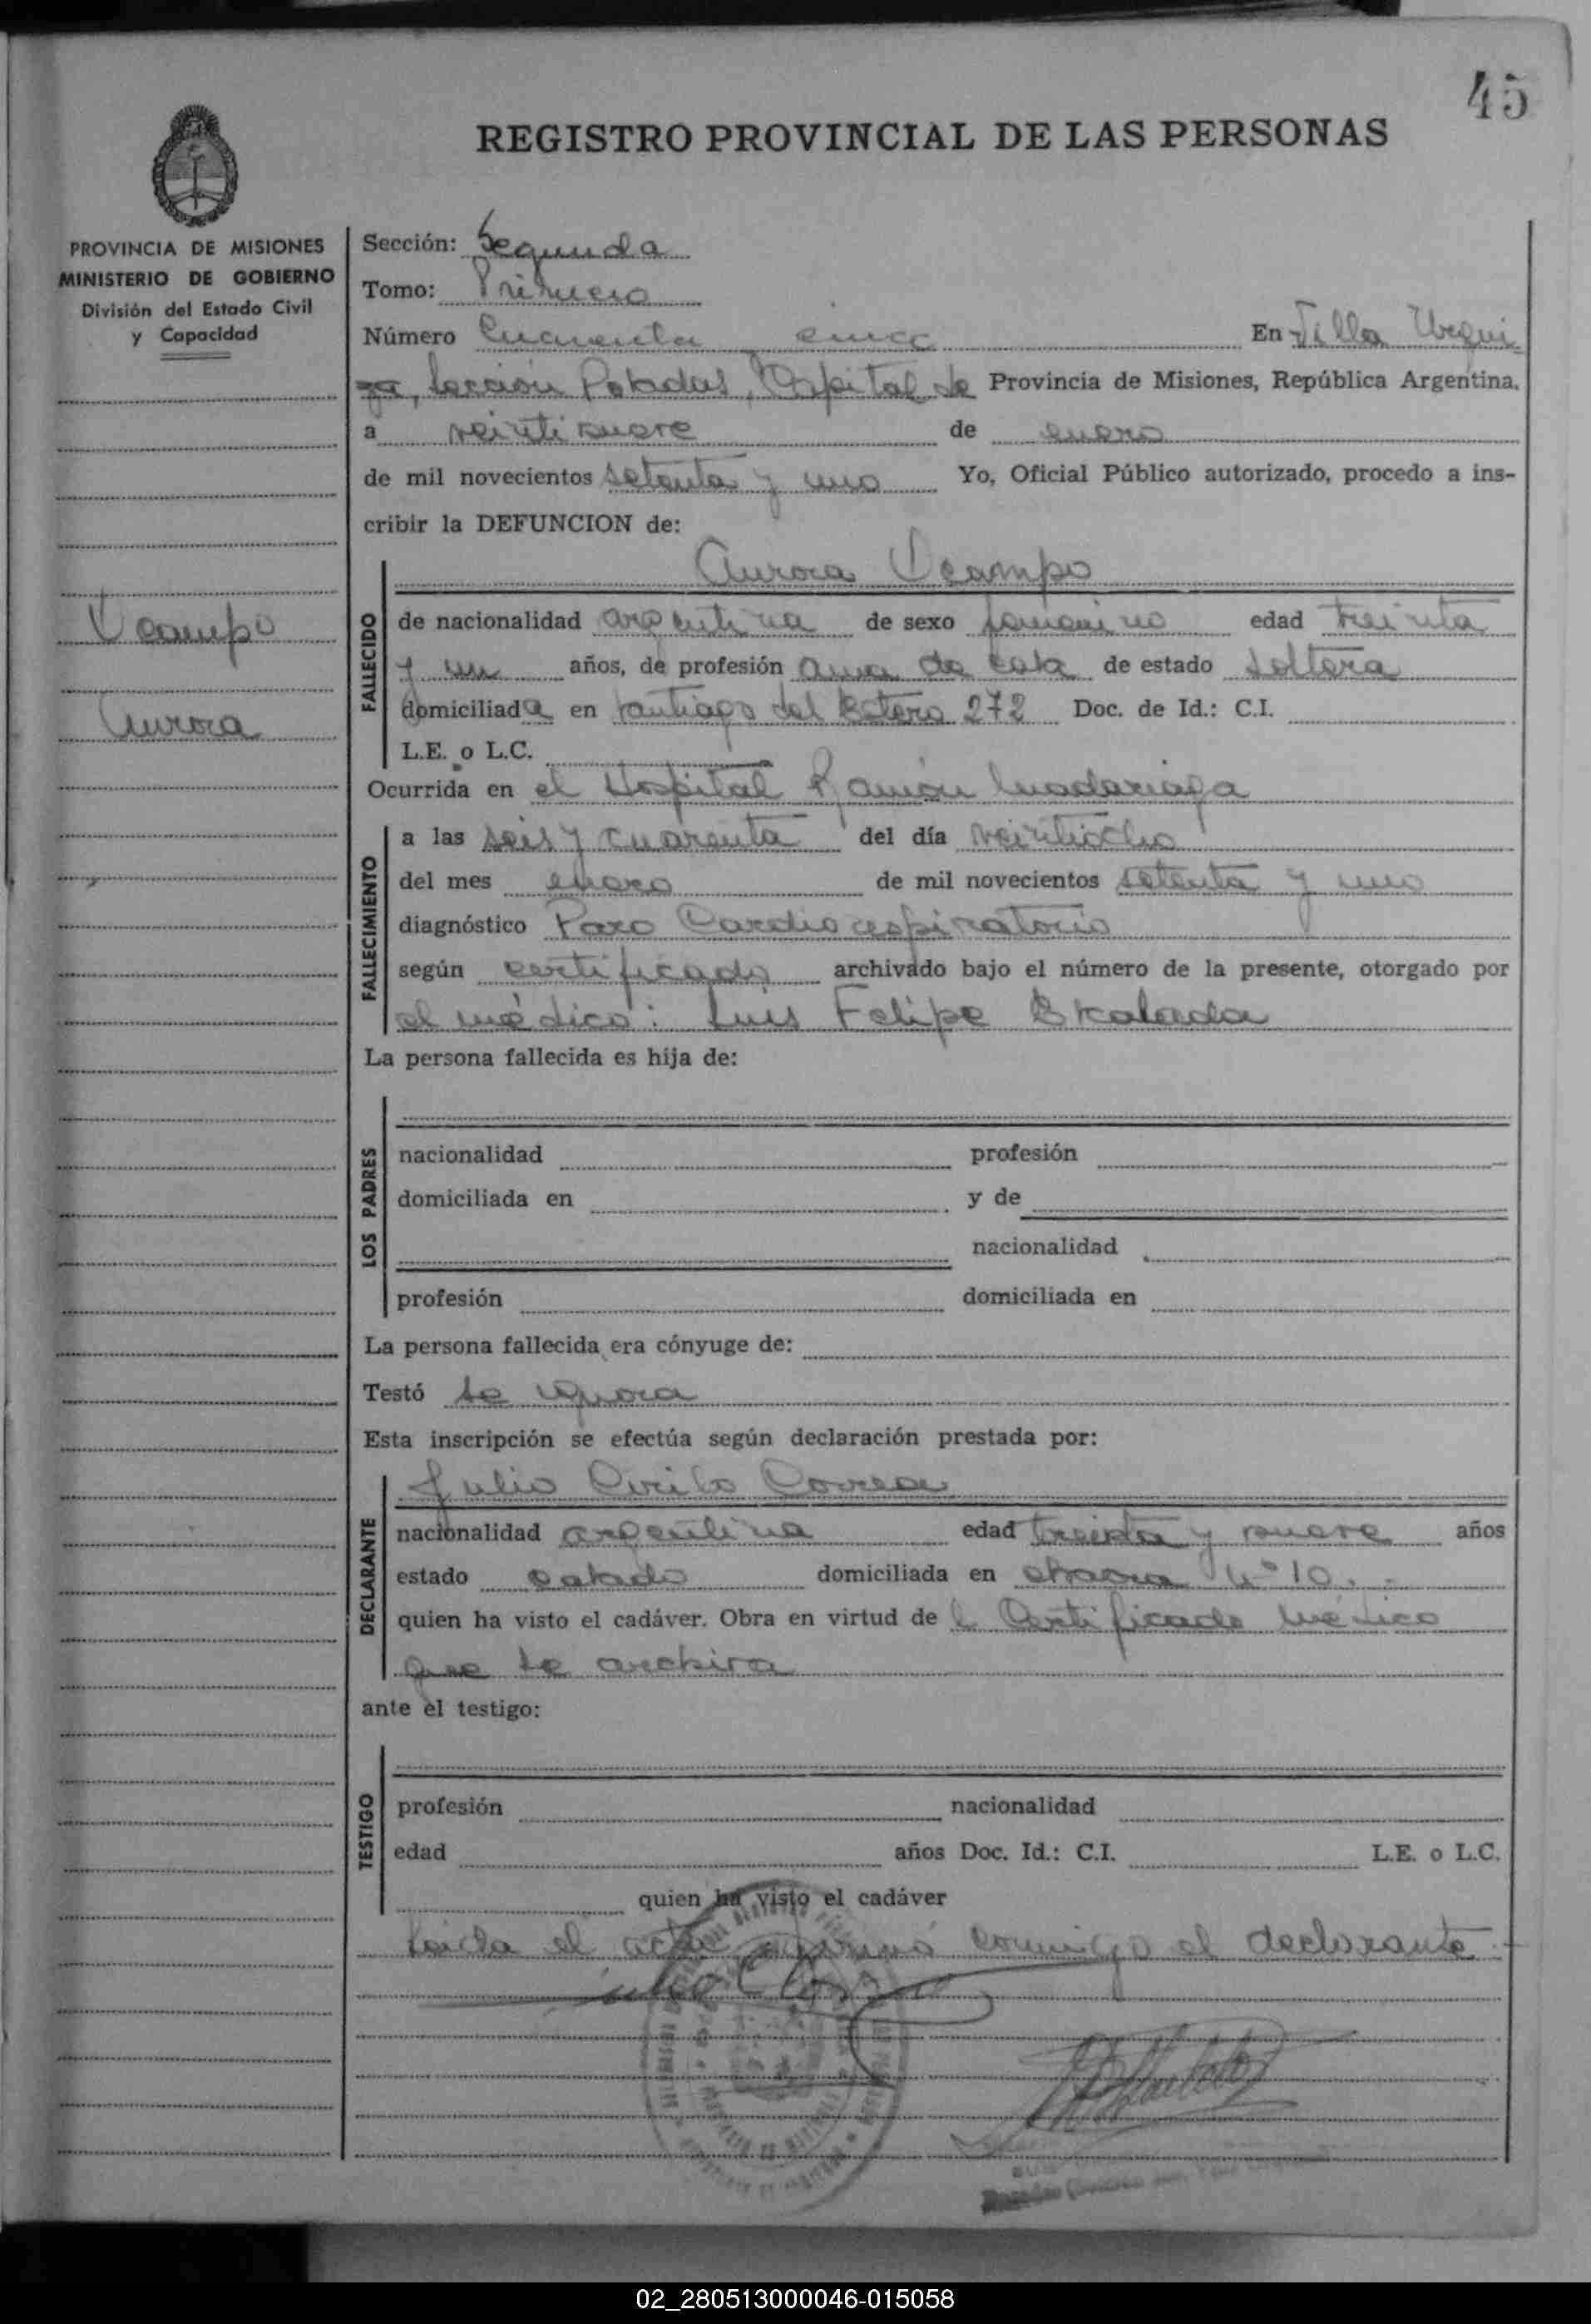 45
REGISTRO PROVINCIAL DE LAS PERSONAS
PROVINCIA DE MISIONES
MINISTERIO DE GOBIERNO
División del Estado Civil
y Capacidad
Ocampo
Aurora
Sección: Segunda
Tomo: Primero
Número Cuarenta y cinco En Villa Urqui
za, Sección Posadas, Capital de Provincia de Misiones, República Argentina,
a veintinueve de enero
de mil novecientos setenta y uno Yo, Oficial Público autorizado, procedo a ins-
cribir la DEFUNCION de:
Aurora Ocampo
FALLECIDO
de nacionalidad argentina de sexo femenino edad treinta
y un años, de profesión ama de casa de estado soltera
domiciliada en Santiago del Estero 272 Doc. de Id.: C.I.
L.E. o L.C.
Ocurrida en el Hospital Ramón Madariaga
FALLECIMIENTO
a las seis y cuarenta del día veintiocho
del mes enero de mil novecientos setenta y uno
diagnóstico Paro Cardiorespiratorio
según certificado archivado bajo el número de la presente, otorgado por
el médico: Luis Felipe Escalada
La persona fallecida es hija de:
LOS PADRES
nacionalidad profesión
domiciliada en y de
nacionalidad
profesión domiciliada en
La persona fallecida era cónyuge de:
Testó se ignora
Esta inscripción se efectúa según declaración prestada por:
Julio Cirilo Correa
DECLARANTE
nacionalidad argentina edad treinta y nueve años
estado casado domiciliada en chacra Nº 10.-
quien ha visto el cadáver. Obra en virtud del Certificado médico
que se archiva
ante el testigo:
TESTIGO
profesión nacionalidad
edad años Doc. Id.: C.I. L.E. o L.C.
quien ha visto el cadáver
Leida el acta firma conmigo el declarante
02_280513000046-015058